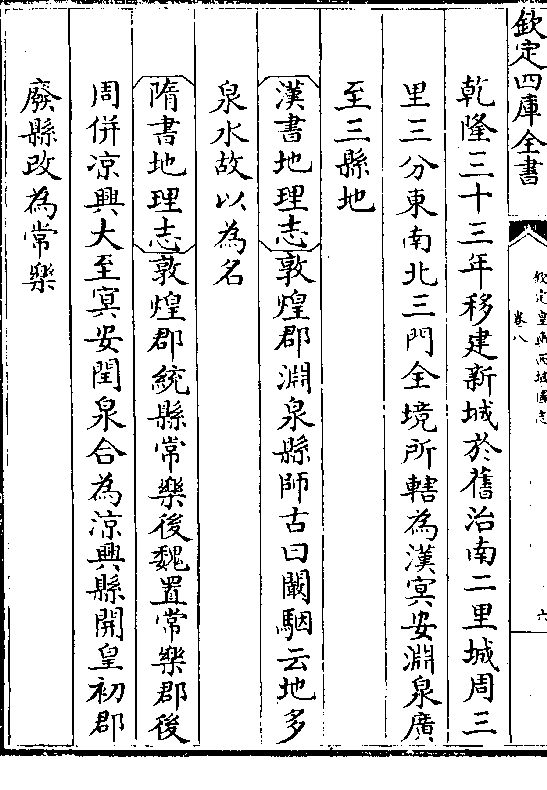 欽定四庫全書
欽定皇輿西域圖志
卷八
六
乾隆三十三年移建新城於舊治南二里城周三
里三分東南北三門全境所轄為漢冥安淵泉廣
至三縣地
漢書地理志敦煌郡淵泉縣師古曰闞駰云地多
泉水故以為名
隋書地理志敦煌郡統縣常樂後魏置常樂郡後
周併凉興大至冥安閏泉合為凉興縣開皇初郡
廢縣改為常樂